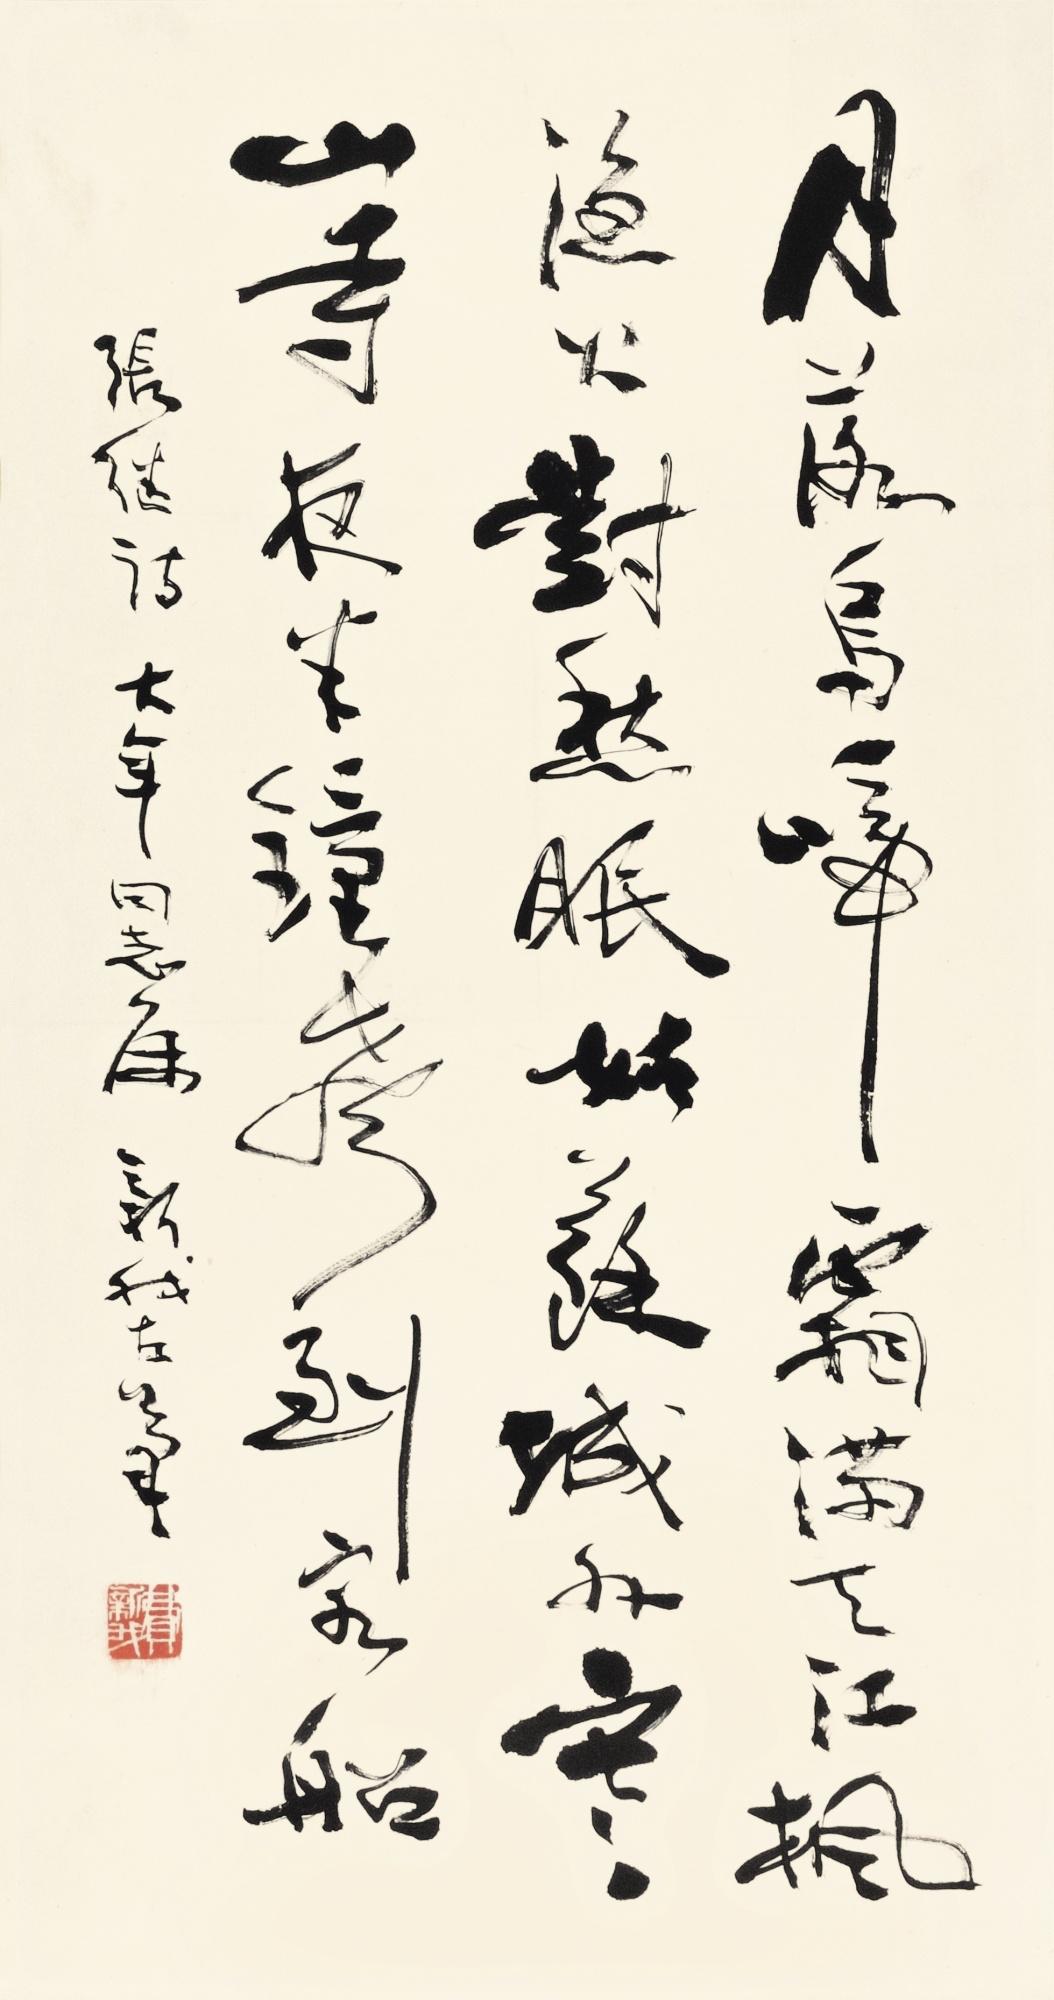 月落烏啼霜滿天江楓
漁火對愁眠姑蘇城外寒
山寺夜半鐘聲到客船
張繼詩 大年同志屬 新我左筆
費新我